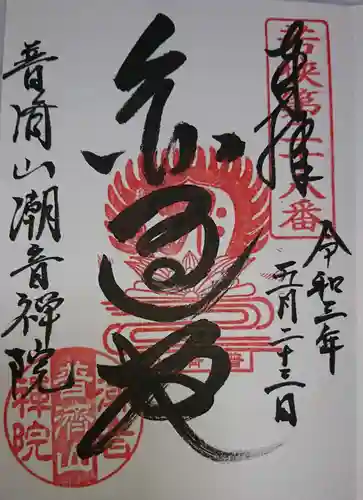 奉拝
若狭第二十八番
令和三年
五月二十三日
普済山潮音禅院
普濟山
潮音
禅院